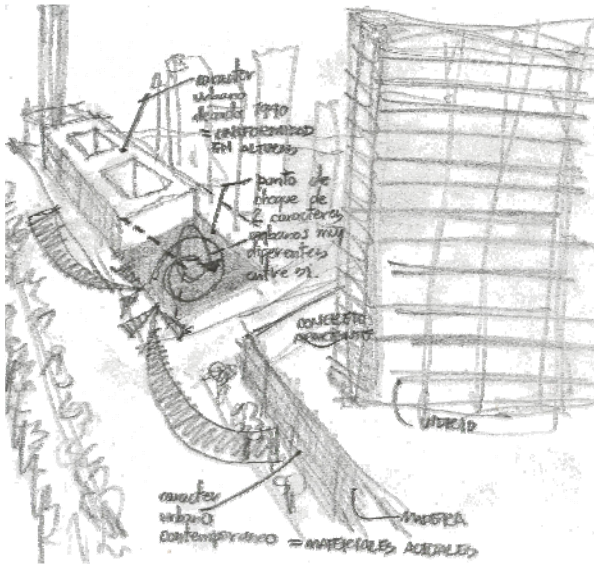 caracter
urbano
decada 1940
= UNIFORMIDAD
EN ALTURAS
punto de
choque de
2 caracteres
urbanos muy
diferentes
entre si.
CONCRETO
VIDRIO
MADERA
caracter
urbano
contemporaneo = MATERIALES ACTUALES